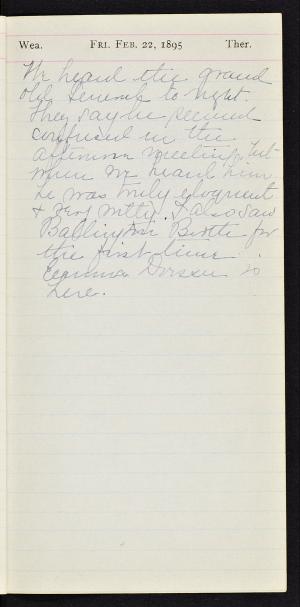 Wea. FRI. FEB. 22, 1895 Ther.
We heard the grand
old General to night.
They say he seemed
confused in the
afternoon meeting, but
when we heard him
he was truly eloquent
& very witty. I also saw
Ballington Booth for
the first time.
Dorsen is
here.